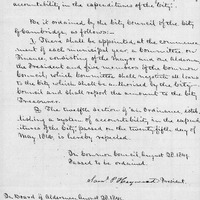 accountability, in the expenditures of the City.
Be it ordained by the City Council of the City
of Cambridge, as follows:
1. There shall be appointed at the commence-
ment of each municipal year, a Committee on
Finance, consisting of the Mayor and one alderman,
the President and five members of the Common
Council; which Committee shall negotiate all loans
to the City which shall be authorized by the City
Council, and shall report the amount to the City
Treasurer.
2. The twelfth section of "an Ordinance estab-
lishing a system of accountability in the expend-
itures of the City, passed on the twenty fifth day of
May 1846, is hereby repealed.
In Common Council, August 28. 1849.
Passed to be ordained.
Saml P. Heywood President.
In Board of Aldermen, August 28. 1849.